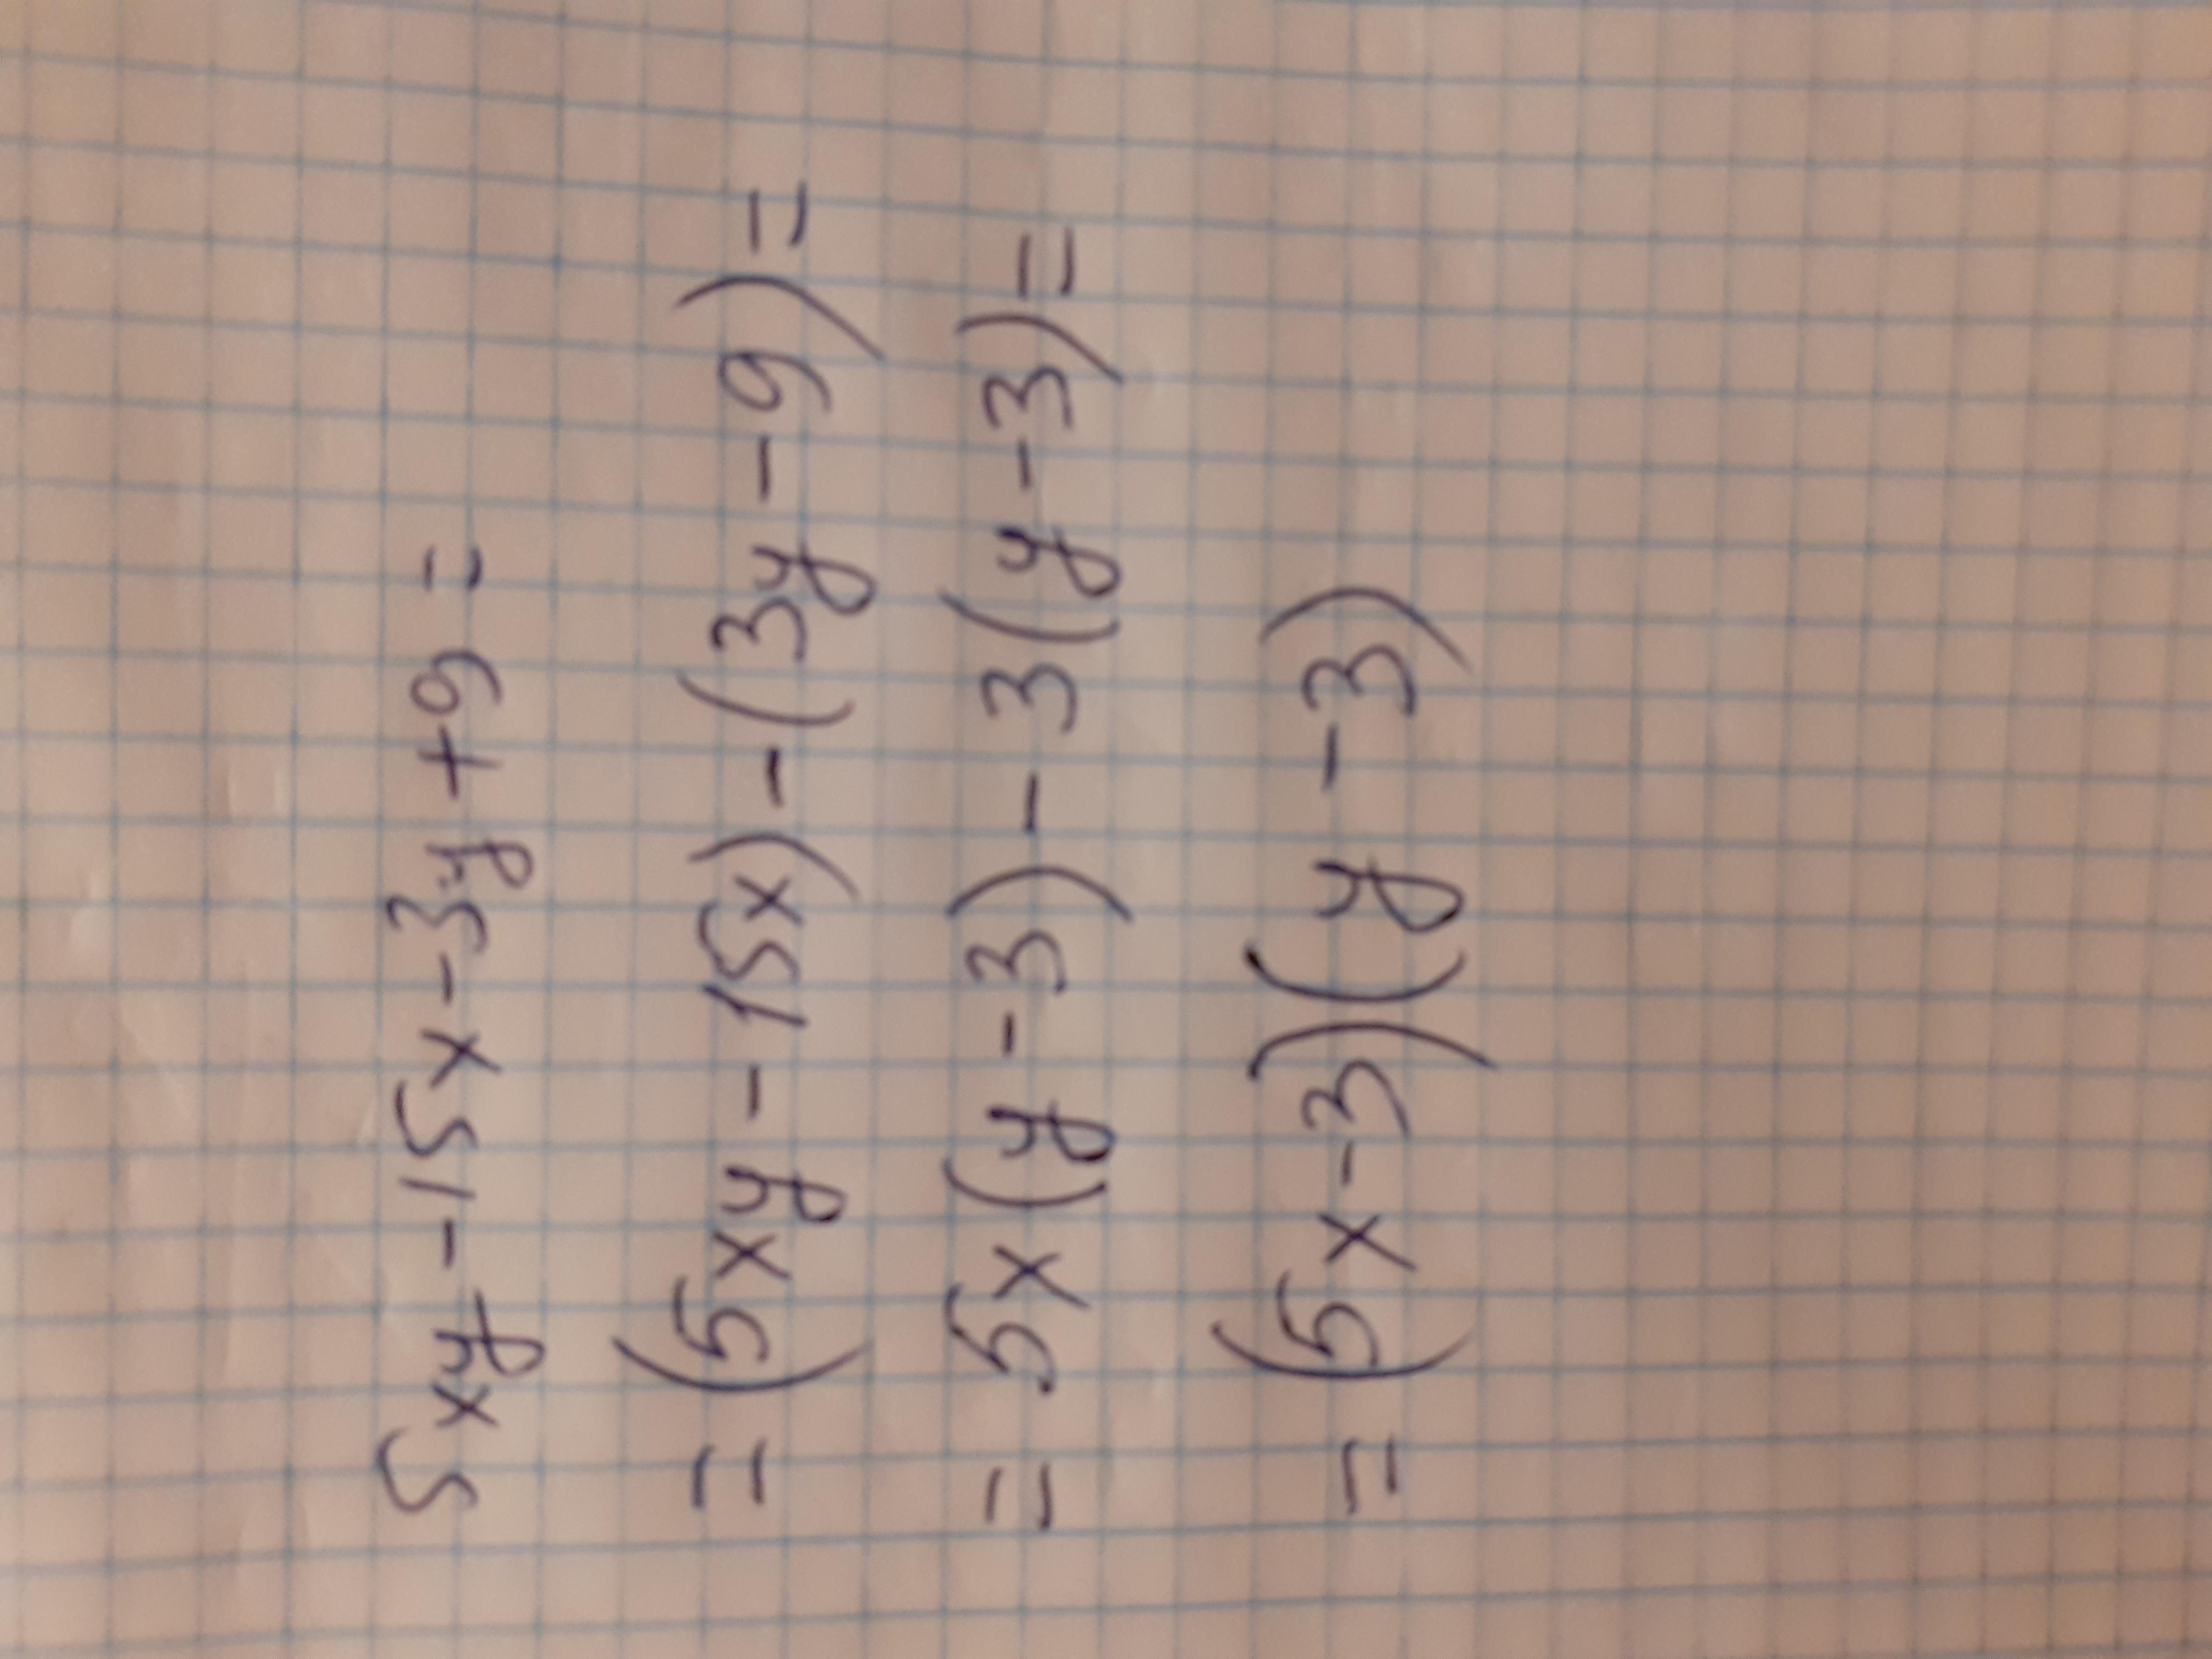 5xy-15x-3y+9=
=(5xy-15x)-(3y-9)=
=5x(y-3)-3(y-3)=
=(5x-3)(y-3)